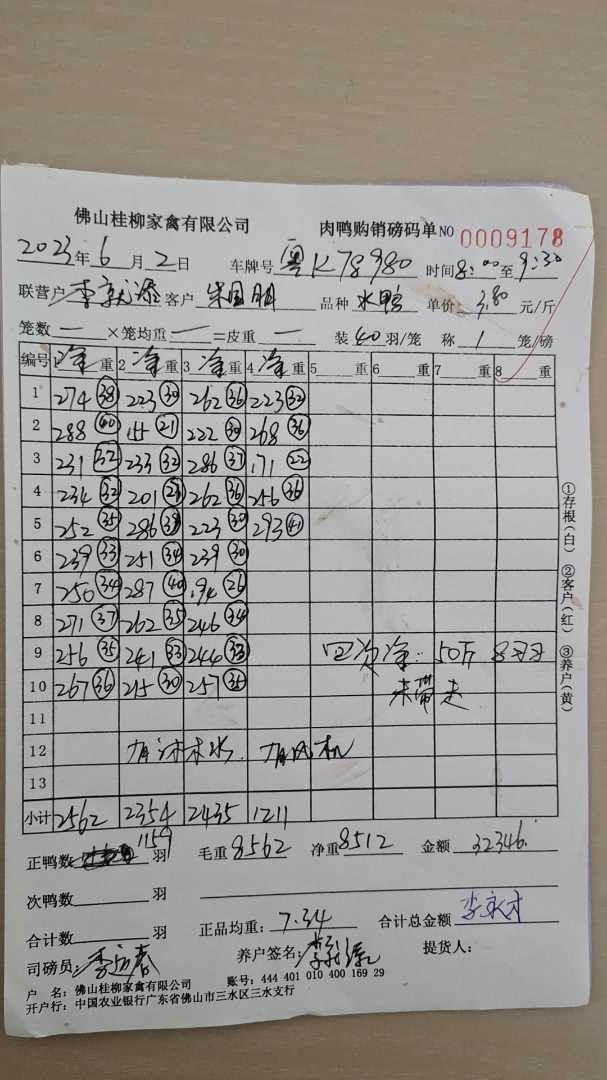 佛山桂柳家禽有限公司 肉鸭购销磅码单 NO 0009178
2023年6月2日 车牌号 粤K78980 时间8:00至9:30
联营户 客户 朱国明 品种 水鸭 单价 3.80 元/斤
笼数 一 ×笼均重 一 =皮重 一 装40羽/笼 称 1 笼/磅
编号 1 净重 2 净重 3 净重 4 净重 5 重 6 重 7 重 8 重
1 274 38 223 30 262 36 223 32
2 288 40 155 21 222 30 268 36
3 231 32 233 32 286 37 171 22
4 234 32 201 262 36 256 36
5 252 35 286 223 30 293 41
6 239 33 251 34 239 30
7 250 34 287 40 194 26
8 271 37 262 35 246 34
9 256 35 241 33 244 33 净:50斤 8羽
10 267 36 215 30 257 35 未带走
11
12 有淋木水. 有风机
13
小计 2562 2354 2435 1211
正鸭数 1159 羽 毛重 8562 净重 8512 金额 32346.
次鸭数 羽
合计数 羽 正品均重: 7.34 合计总金额
司磅员: 养户签名: 提货人:
户 名: 佛山桂柳家禽有限公司 账号: 444 401 010 400 169 29
开户行: 中国农业银行广东省佛山市三水区三水支行
①存根(白) ②客户(红) ③养户(黄)